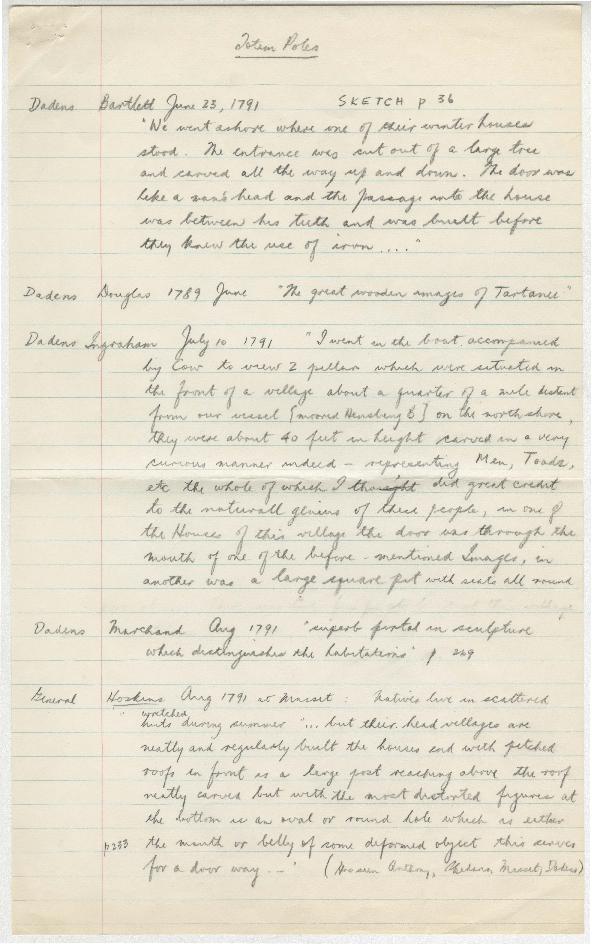 Totem Poles
Dadens Bartlett June 23, 1791 SKETCH p 36
"We went ashore where one of their winter houses
stood. The entrance was cut out of a large tree
and carved all the way up and down. The door was
like a man's head and the passage into the house
was between his teeth and was built before
they knew the use of iron ...."
Dadens Douglas 1789 June "The great wooden images of Tartanee"
Dadens Ingraham July 10 1791 "I went in the boat accompanied
by Cow to view 2 pillars which were situated in
the front of a village about a quarter of a mile distent
from our vessel [moored Henslung B] on the north shore,
they were about 40 feet in height carved in a very
curious manner indeed – representing Men, Toads,
etc the whole of which I thought did great credit
to the naturall genius of these people, in one of
the Houses of this village the door was through the
mouth of one of the before-mentioned Images, in
another was a large square pit with seats all round
Dadens Marchand Aug 1791 "superb portal in sculpture
which distinguishes the habitations" p 269
General Hoskins Aug 1791 at Masset : Natives live in scattered
" wretched
huts during summer "... but their head villages are
neatly and regularly built the houses end with pitched
roofs in front is a large post reaching above the roof
neatly carved but with the most distorted figures at
the bottom is an oval or round hole which is either
p233 the mouth or belly of some deformed object this serves
for a door way. –" ( Masset, Dadens)